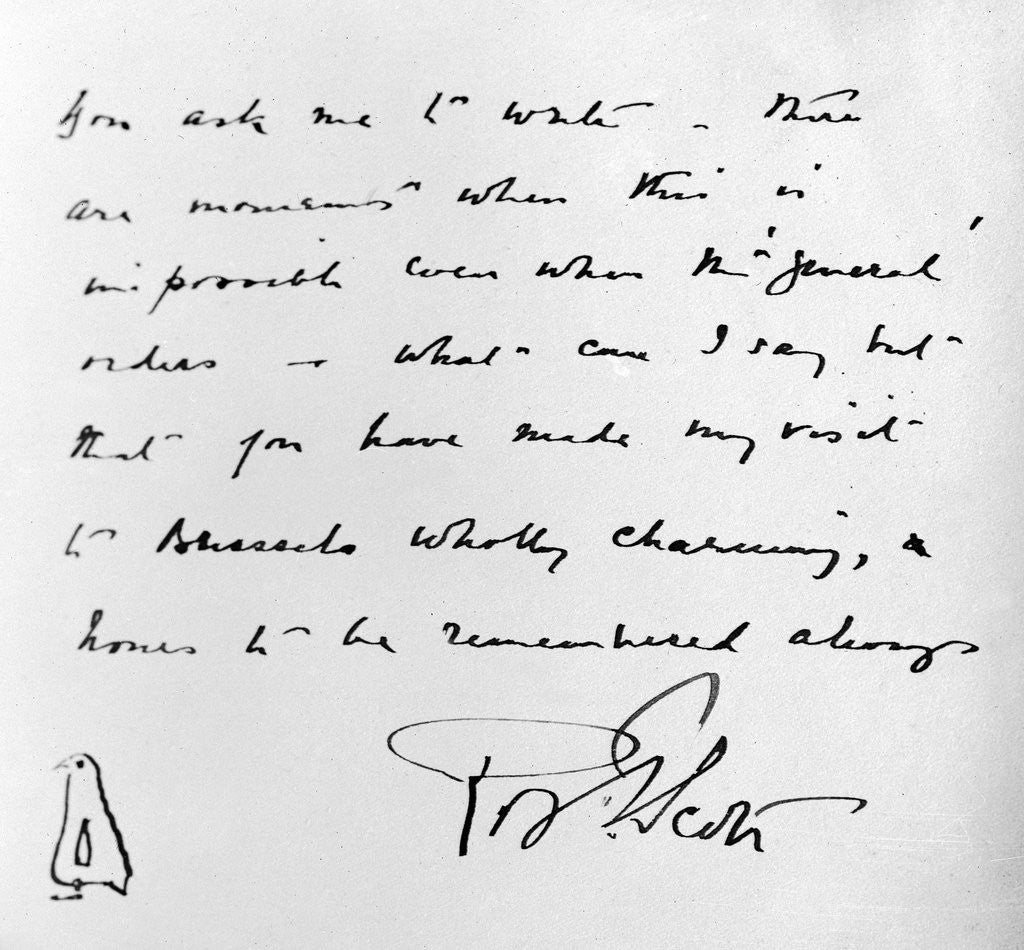 You ask me to write - there
are moments when this is
impossible even when the 'general'
orders - what can I say but
that you have made my visit
to Brussels wholly charming, &
hopes to be remembered always
Scott